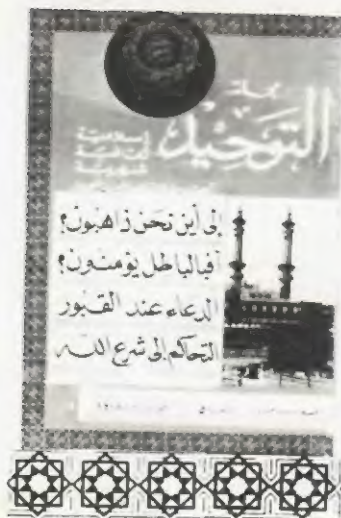 مجلة
التوحيد
إسلامية
ثقافية
شهرية
إلى أين نحن ذاهبون؟
أفبالباطل يؤمنون؟
الدعاء عند القبور
التحاكم إلى شرع الله